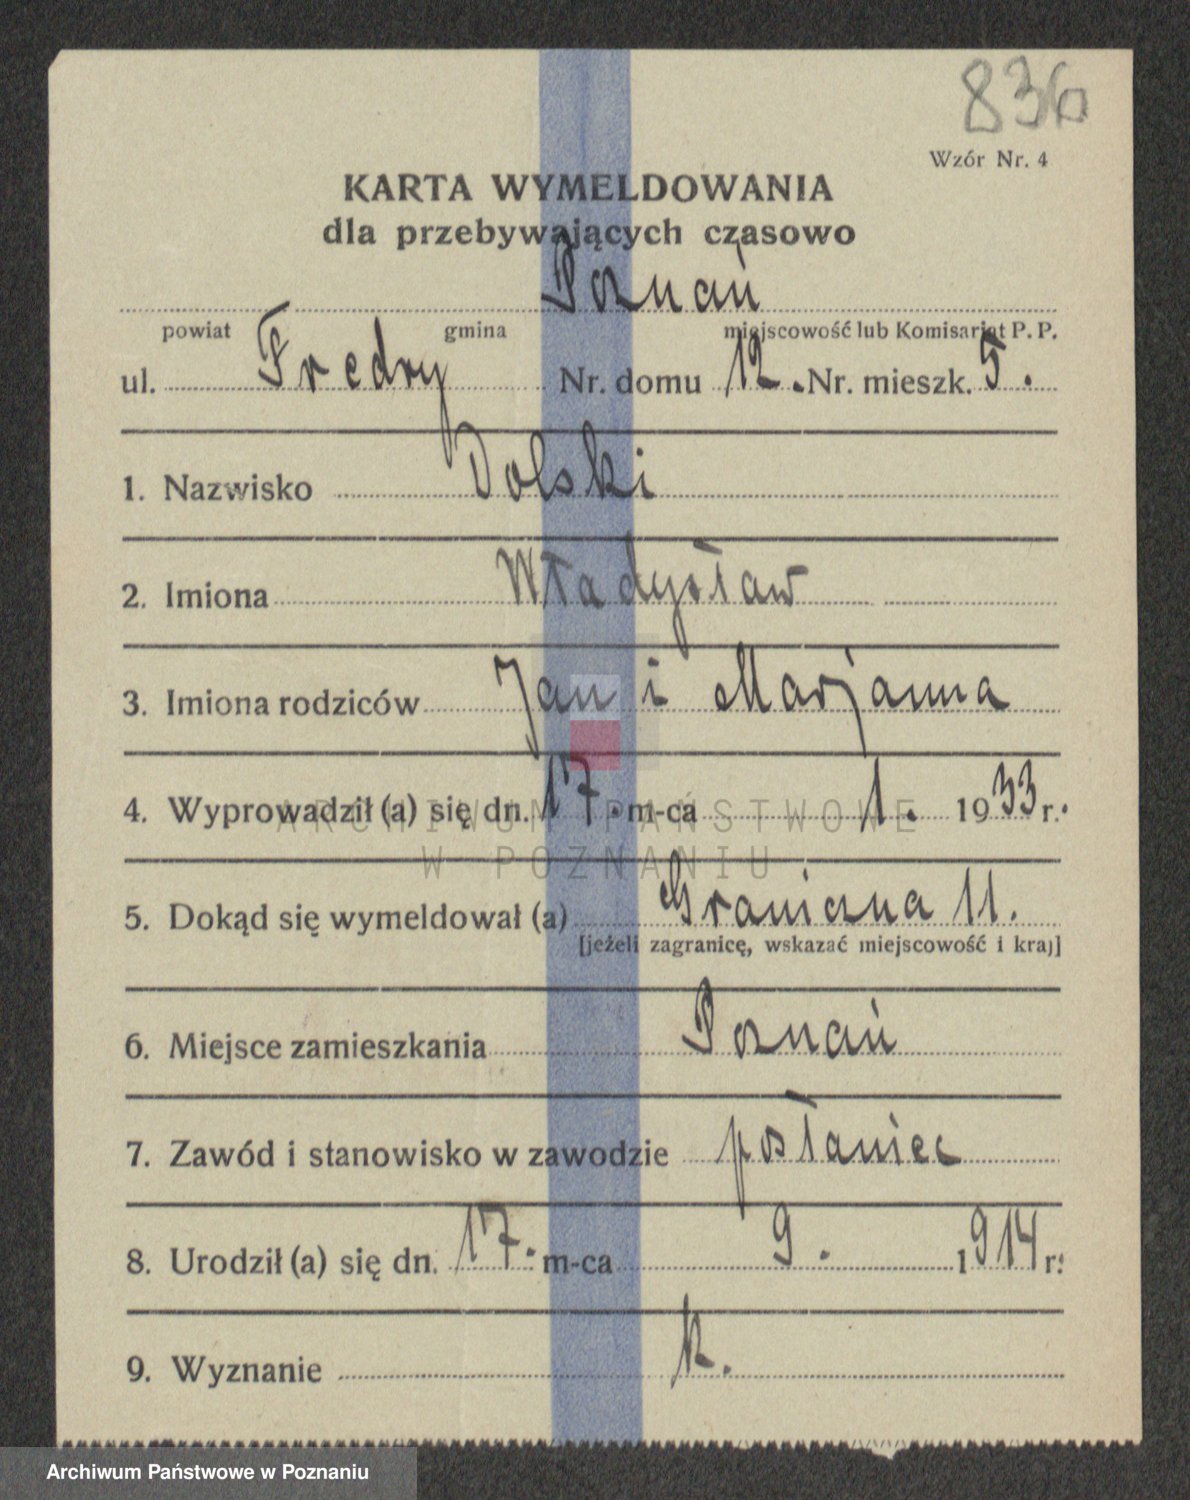 836
Wzór Nr. 4
KARTA WYMELDOWANIA
dla przebywających czasowo
Poznań
powiat gmina miejscowość lub Komisarjat P. P.
ul. Fredry Nr. domu 12. Nr. mieszk. 5.
1. Nazwisko Dolski
2. Imiona Władysław
3. Imiona rodziców Jan i Marjanna
4. Wyprowadził (a) się dn. 17. m-ca 1. 1933 r.
ARCHIWUM PAŃSTWOWE
W POZNANIU
5. Dokąd się wymeldował (a) Graniczna 11.
[jeżeli zagranicę, wskazać miejscowość i kraj]
6. Miejsce zamieszkania Poznań
7. Zawód i stanowisko w zawodzie posłaniec
8. Urodził (a) się dn. 17. m-ca 9. 1914 r.
9. Wyznanie k.
Archiwum Państwowe w Poznaniu